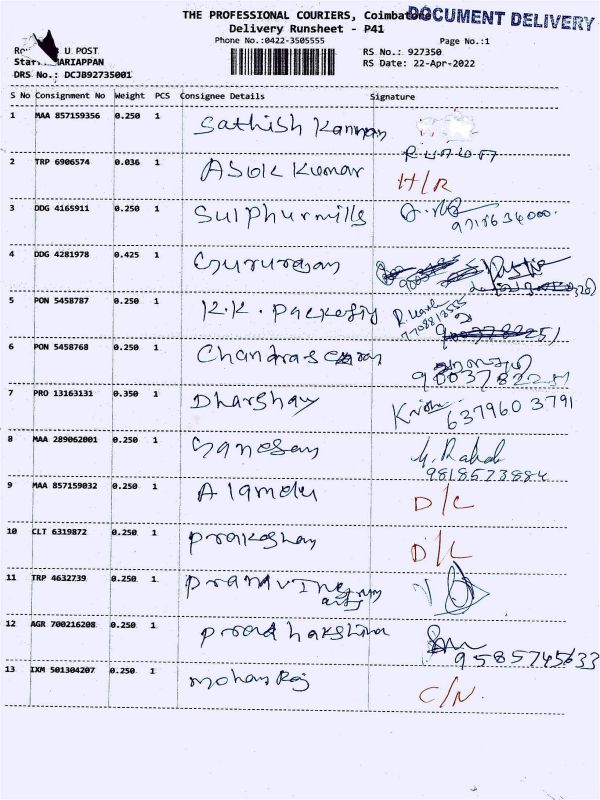 THE PROFESSIONAL COURIERS, Coimbatore
DOCUMENT DELIVERY
Delivery Runsheet - P41
Phone No.:0422-3505555
Page No.:1
U POST
RS No.: 927350
ARIAPPAN
RS Date: 22-Apr-2022
DRS No.: DCJB92735001
S No Consignment No Weight PCS Consignee Details Signature
1 MAA 857159356 0.250 1 Sathish Kannan
2 TRP 6906574 0.036 1 Asok Kumar H/R
3 DDG 4165911 0.250 1 Sulphurmills
9715634000.
4 DDG 4281978 0.425 1 Gururajan
5 PON 5458787 0.250 1 K.K. Packeging
7708813555
6 PON 5458768 0.250 1 Chandrasekaran
9003782251
7 PRO 13163131 0.350 1 Dharshan Krish
637960 3791
8 MAA 289062001 0.250 1 Ganesan
9818573884
9 MAA 857159032 0.250 1 Alamelu D/C
10 CLT 6319872 0.250 1 Prakashan D/L
11 TRP 4632739 0.250 1
12 AGR 700216208 0.250 1 Pradhakshina
9585745633
13 IXM 501304207 0.250 1 Mohan Raj C/N.